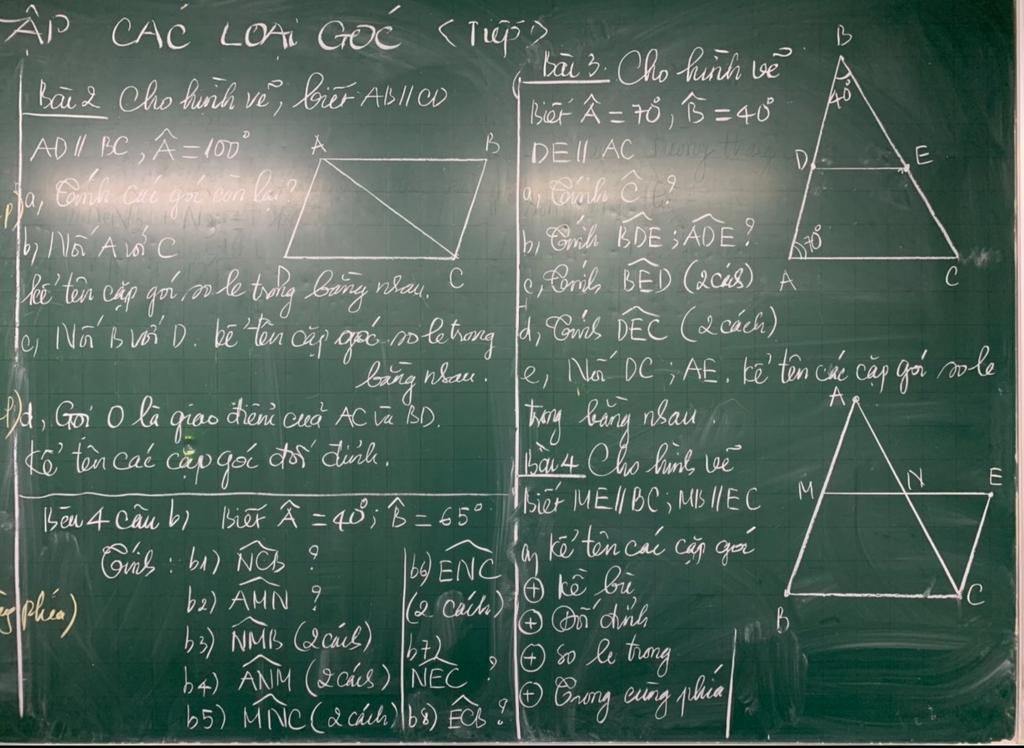 ẬP CÁC LOẠI GÓC (Tiếp)
Bài 2 Cho hình vẽ, biết AB // CD
AD // BC, Â = 100°
a, Tính các góc còn lại?
b, Nối A với C
kể tên cặp góc so le trong bằng nhau.
c, Nối B với D. kể tên cặp góc so le trong
bằng nhau.
d, Gọi O là giao điểm của AC và BD.
Kể tên các cặp góc đối đỉnh.
A B
C
Bài 3. Cho hình vẽ
Biết Â = 70°, B̂ = 40°
DE // AC
a, Tính Ĉ ?
b, Tính BDE ; ADE ?
c, Tính BED (2 cách)
d, Tính DEC (2 cách)
e, Nối DC ; AE. kể tên các cặp góc so le
trong bằng nhau.
B
40°
D E
70°
A C
Bài 4 Cho hình vẽ
Biết ME // BC ; MB // EC
a, kể tên các cặp góc
+ kề bù
+ Đối đỉnh
+ so le trong
+ Trong cùng phía
A
M N E
B C
Bài 4 câu b) Biết Â = 40° ; B̂ = 65°
Tính : b1) NCB ?
b2) AMN ?
b3) NMB (2 cách)
b4) ANM (2 cách)
b5) MNC (2 cách)
b6) ENC
(2 cách)
b7)
NEC ?
b8) ECB ?
phía)